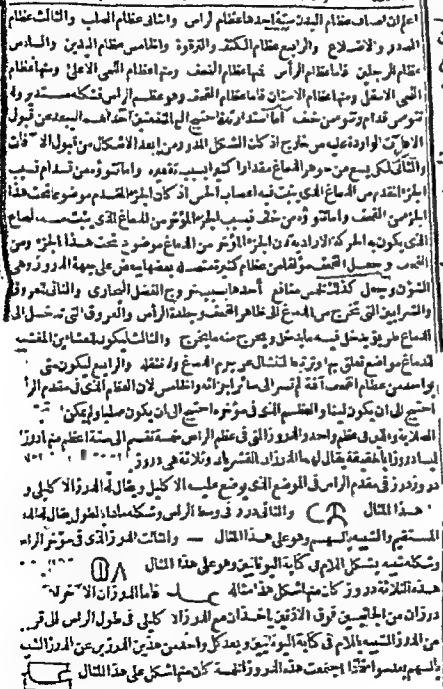 اعلم ان اصناف عظام البدن ستة احدها عظام الراس والثانى عظام الصلب والثالث عظام
الصدر والاضلاع والرابع عظام الكتف والترقوة والخامس عظام اليدين والسادس
عظام الرجلين فاما عظام الرأس فمنها عظام القحف ومنها عظام اللحى الاعلى ومنها عظام
اللحى الاسفل ومنها عظام الاسنان فاما عظام القحف وهو عظم الراس فشكله مستدير وله
نتو من قدام ونتو من خلف اما استدارته فاحتيج اليها لمنفعتين احداهما البعد عن قبول
الآفات الواردة عليه من خارج اذ كان الشكل المدور من ابعد الاشكال من قبول الآفات
والثانى لكى يسع من جوهر الدماغ مقدارا كثيرا واما نتوه من قدام فبسبب
الجزء المقدم من الدماغ الذى ينبت فيه اعصاب الحس اذ كان الجزء المقدم موضوعا تحت هذا
الجزء من القحف واما نتوه من خلف فبسبب الجزء المؤخر من الدماغ الذى ينبت منه النخاع
الذى يكون به الحركة الارادية لان الجزء المؤخر من الدماغ موضوع تحت هذا الجزء من
القحف وجعل القحف مؤلفا من عظام كثيرة متصلة بعضها ببعض على جهة الدروز وهى
الشؤن وجعل كذلك لخمس منافع احدها بسبب خروج الفضل البخارى والثانى للعروق
والشرايين التى تخرج من الدماغ الى ظاهر القحف وجلدة الرأس والعروق التى تدخل الى
الدماغ طريق يدخل فيه ما يدخل ويخرج منه ما يخرج والثالث ليكون للغشاء بن المغشى
للدماغ مواضع تعلق بها وترتبط لتشال عن جرم الدماغ ولا تثقله والرابع ليكون متى
بواحد من عظام القحف آفة لم تسر الى سائر اجزائه والخامس لان العظم الذى فى مقدم الرأ
احتيج الى ان يكون لينا والعظم الذى فى مؤخره احتيج الى ان يكون صلبا ولم يكن
الصلابة واللين فى عظم واحد والدروز التى فى عظم الراس خمسة تنقسم الى ستة اعظم منها درزا
ليسا دروزا بالحقيقة يقال لهما الدرزان القشريان وثلاثة هى دروز
درز فى مقدم الراس فى الموضع الذى يوضع عليه الاكليل ويقال له الدرز الاكليلى و
هذا المثال والثانى درز فى وسط الراس وشكله مار بالطول يقال له الد
المستقيم والشبيه بالسهم وهو على هذا المثال — والثالث الدرز الذى فى مؤخر الراس
وشكله شبيه بشكل اللام فى كتابة اليونانيين وهو على هذا المثال Λ
هذه الثلاثة دروز كان منها شكل هذا مثاله فاما الدرزان الآخران
درزان من الجانبين فوق الاذنين ياخذان مع الدرز الاكليلى فى طول الراس الى قر
من الدرز الشبيه باللام فى كتابة اليونانيين وبعد كل واحد من هذين الدرزين عن الدرز الشبيه
بالسهم بعد سواء فاذا اجتمعت هذه الدروز الخمسة كان منها شكل على هذا المثال